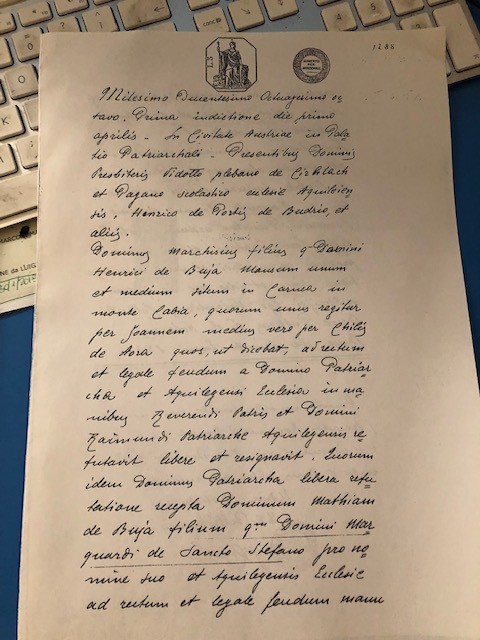 L.3
1288
Milesimo Ducentesimo Octuagesimo oc
tavo. Prima indictione die primo
aprilis - In Civitate Austriae in Pala
tio Patriarchali - Presentibus Dominis
Presbiteris Vidotto plebano de Cirklach
et Pagano scolastico eclesie Aquileien
sis, Henrico de Portis de Budrio, et
aliis.
Dominus Marchisius filius q Domini
Henrici de Buja Mansum unum
et medium situm in Carnea in
monte Cabia, quorum unus regitur
per Joannem medius vero per Chilis
de Aora quos, ut dicebat, ad rectum
et legale feudum a Domino Patriar
cha et Aquilegensi Eclesia in ma
nibus Reverendi Patris et Domini
Raimundi Patriarche Aquilegensis re
futavit libere et resignavit. Quorum
idem Dominus Patriarcha libera refu
tatione recepta Dominum Mathiam
de Buja filium qm Domini Mar
quardi de Sancto Stefano pro no
mine suo et Aquilegensis Eclesie
ad rectum et legale feudum manu